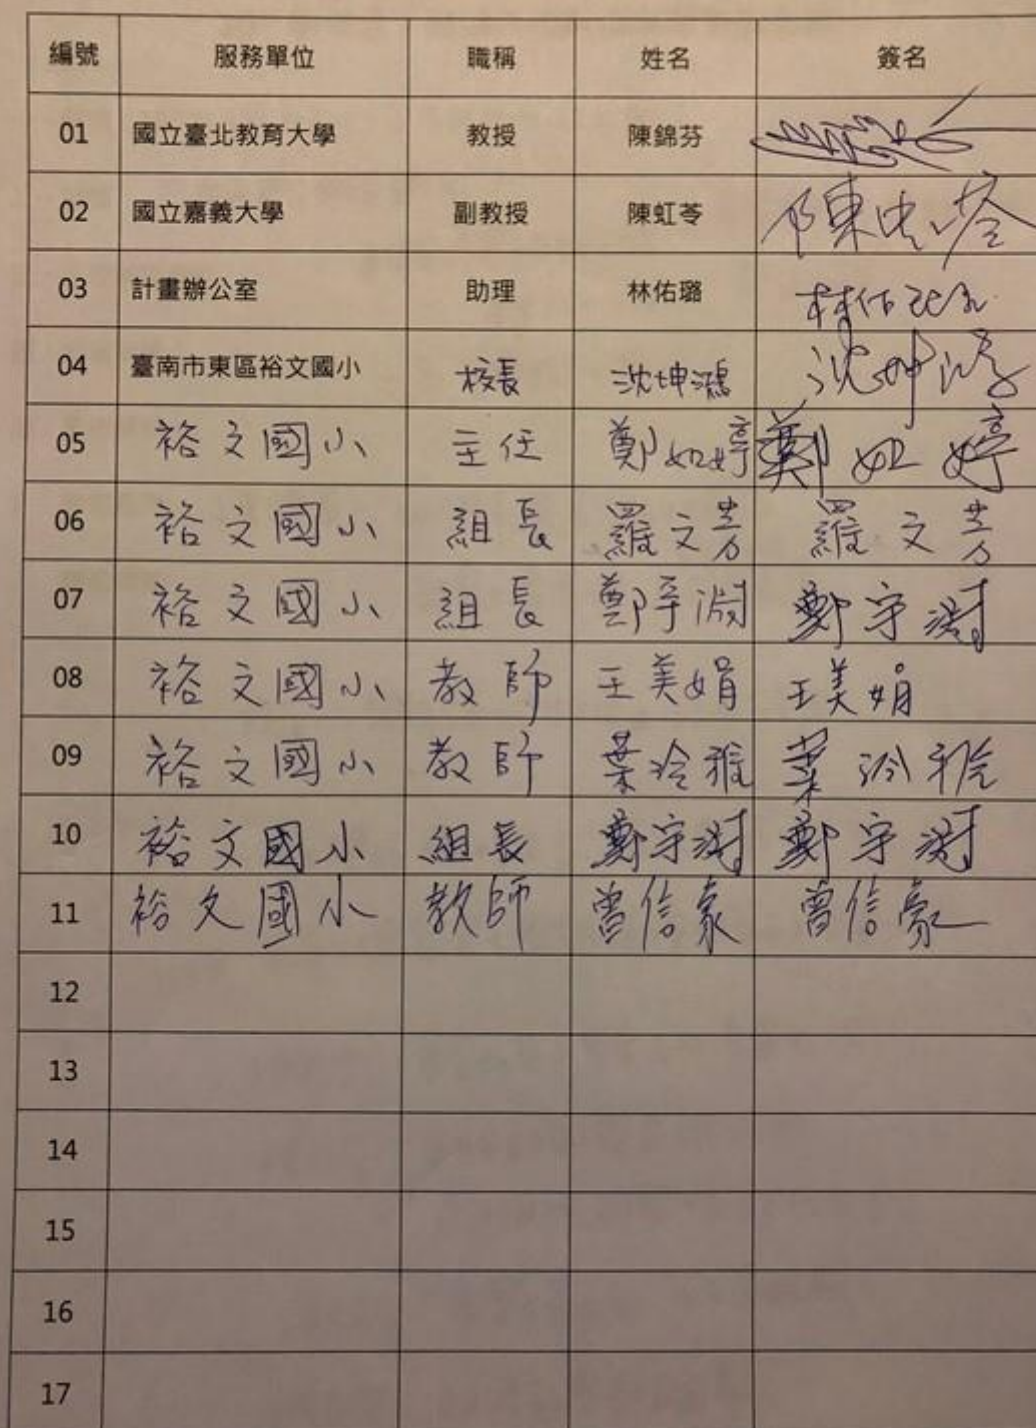 編號 服務單位 職稱 姓名 簽名
01 國立臺北教育大學 教授 陳錦芬
02 國立嘉義大學 副教授 陳虹苓 陳虹苓
03 計畫辦公室 助理 林佑璐 林佑璐
04 臺南市東區裕文國小 校長 沈坤鴻 沈坤鴻
05 裕文國小 主任 鄭如婷 鄭如婷
06 裕文國小 組長 羅文芳 羅文芳
07 裕文國小 組長 鄭宇 鄭宇澍
08 裕文國小 教師 王美娟 王美娟
09 裕文國小 教師 葉冷雅 葉冷雅
10 裕文國小 組長 鄭宇澍 鄭宇澍
11 裕文國小 教師 曾信豪 曾信豪
12
13
14
15
16
17